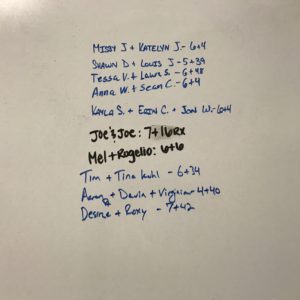 Missy J + Katelyn J. - 6+4
Shawn D + Louis J - 5+39
Tessa V. + Laura S. - 6+48
Anna W. + Sean C. - 6+4
Kayla S. + Erin C. + Jon W. - 6+4
Joe & Joe: 7+16 RX
Mel + Rogelio: 6+6
Tim + Tina Kuhl - 6+34
Aaron + Davia + Virginia - 4+40
Desirae + Roxy - 7+42